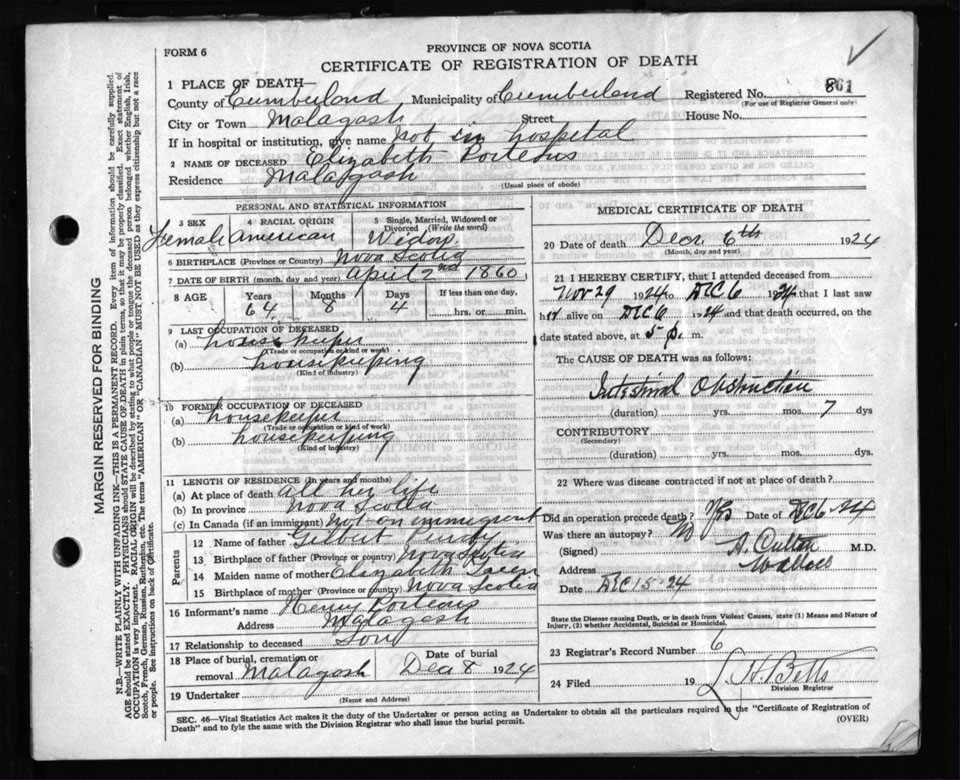 FORM 6
PROVINCE OF NOVA SCOTIA
CERTIFICATE OF REGISTRATION OF DEATH
MARGIN RESERVED FOR BINDING
N.B.—WRITE PLAINLY WITH UNFADING INK—THIS IS A PERMANENT RECORD. Every item of information should be carefully supplied.
AGE should be stated EXACTLY. PHYSICIANS should STATE CAUSE OF DEATH in plain terms, so that it may be properly classified. Exact statement of
OCCUPATION is very important. RACIAL ORIGIN will be described by stating to what people or tongue the deceased person belonged whether English, Irish,
Scotch, French, German, Russian, Ruthenian, etc. The terms "AMERICAN" OR "CANADIAN" MUST NOT BE USED as they express citizenship but not a race
or people. See instructions on back of Certificate.
1 PLACE OF DEATH—
County of Cumberland Municipality of Cumberland Registered No. 861
(For use of Registrar General only)
City or Town Malagash Street House No.
If in hospital or institution, give name not in hospital
2 NAME OF DECEASED Elizabeth Porteus
Residence Malagash
(Usual place of abode)
PERSONAL AND STATISTICAL INFORMATION
3 SEX 4 RACIAL ORIGIN 5 Single, Married, Widowed or
Divorced (Write the word)
Female American Widow
6 BIRTHPLACE (Province or Country) Nova Scotia
7 DATE OF BIRTH (month, day, and year) April 2nd 1860
8 AGE Years Months Days If less than one day,
64 8 4 hrs. or min.
9 LAST OCCUPATION OF DECEASED
(a) housekeeper
(Trade or occupation or kind of work)
(b) housekeeping
(Kind of industry)
10 FORMER OCCUPATION OF DECEASED
(a) housekeeper
(Trade or occupation or kind of work)
(b) housekeeping
(Kind of industry)
11 LENGTH OF RESIDENCE (In years and months)
(a) At place of death all her life
(b) In province Nova Scotia
(c) In Canada (if an immigrant) not an immigrant
Parents
12 Name of father Gilbert
13 Birthplace of father (Province or country) Nova Scotia
14 Maiden name of mother Elizabeth
15 Birthplace of mother (Province or country) Nova Scotia
16 Informant's name Henry Porteus
Address Malagash
17 Relationship to deceased Son
18 Place of burial, cremation or
removal Malagash
Date of burial
Dec 8 1924
19 Undertaker
(Name and Address)
MEDICAL CERTIFICATE OF DEATH
20 Date of death Dec. 6th 1924
(Month, day and year)
21 I HEREBY CERTIFY, that I attended deceased from
Nov 29 1924 to DEC 6 1924 that I last saw
her alive on DEC 6 1924 and that death occurred, on
date stated above, at 5 p. m.
The CAUSE OF DEATH was as follows:
Intestinal Obstruction
(duration) yrs. mos. 7 dys
CONTRIBUTORY
(Secondary)
(duration) yrs. mos. dys
22 Where was disease contracted if not at place of death?
Did an operation precede death? Yes Date of DEC 6 - 24
Was there an autopsy? No
(Signed) M.D.
Address Wallace
Date DEC 15 - 24
State the Disease causing Death, or in death from Violent Causes, state (1) Means and Nature of
Injury, (2) whether Accidental, Suicidal or Homicidal.
23 Registrar's Record Number 6
24 Filed 19 L. H. Betts
Division Registrar
SEC. 46—Vital Statistics Act makes it the duty of the Undertaker or person acting as Undertaker to obtain all the particulars required in the "Certificate of Registration of
Death" and to fyle the same with the Division Registrar who shall issue the burial permit.
(OVER)